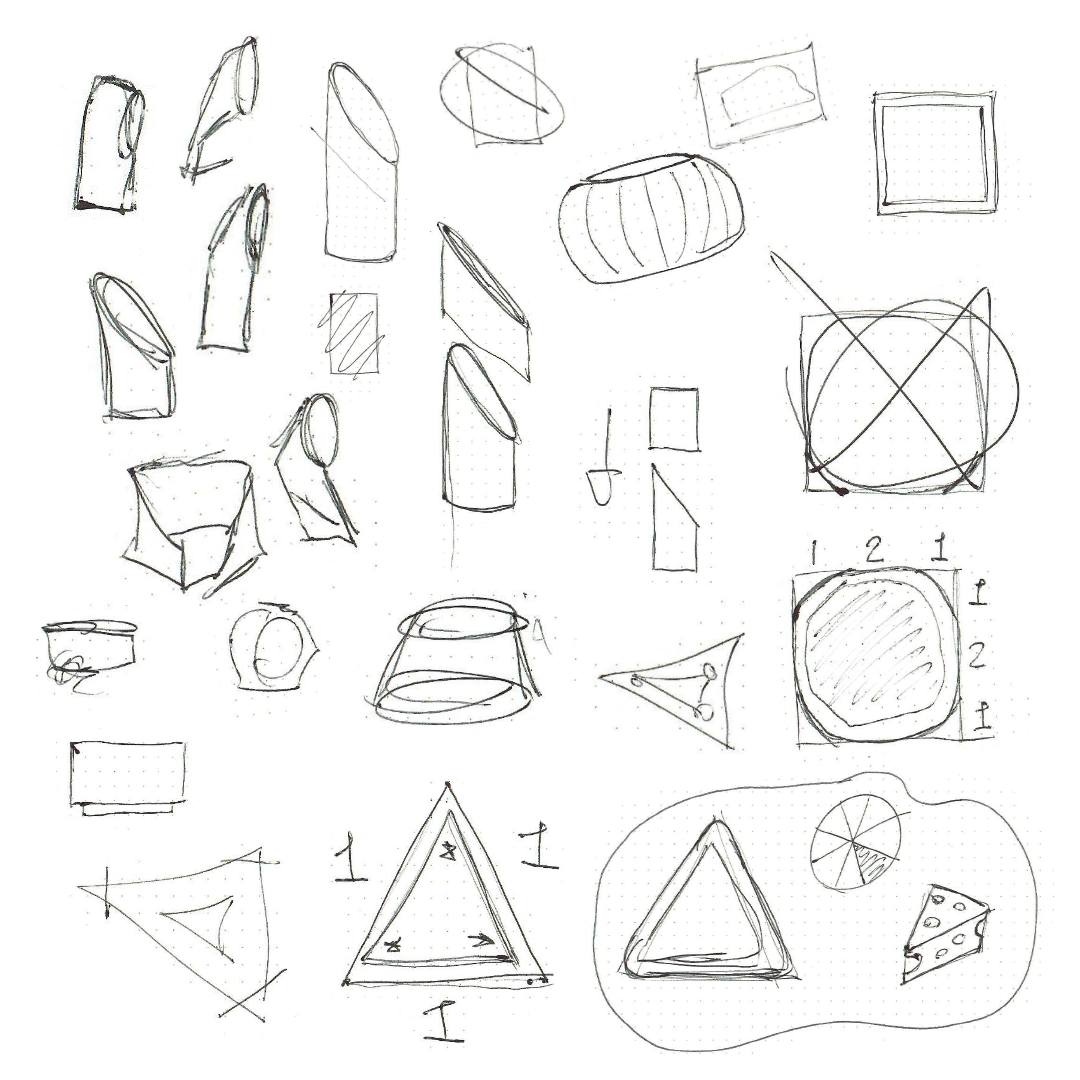 1 2 1
1
2
1
1 1
1